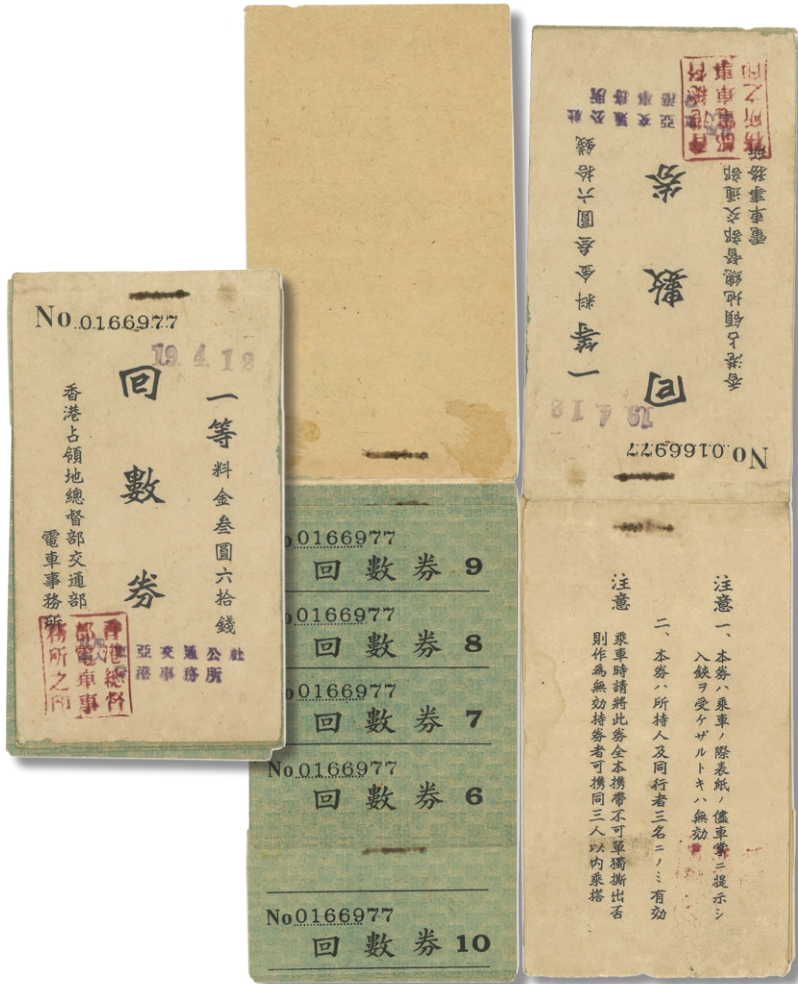 No 0166977
回數券
一等料金叁圓六拾錢
香港占領地總督部交通部
電車事務所
亞交通公社
港事務所
香港總督
部電車事
務所之印
No 0166977
回數券 9
No 0166977
回數券 8
No 0166977
回數券 7
No 0166977
回數券 6
No 0166977
回數券 10
No 0166977
回數券
一等料金叁圓六拾錢
香港占領地總督部交通部
電車事務所
亞交通公社
港事務所
香港總督
部電車事
務所之印
注意 一、本券ハ乘車ノ際表紙ノ儘車掌ニ提示シ
入鋏ヲ受ケザルトキハ無効
二、本券ハ所持人及同行者三名ニノミ有効
注意
乘車時請將此券全本携帶不可單獨撕出否
則作爲無効持券者可携同三人以内乘搭